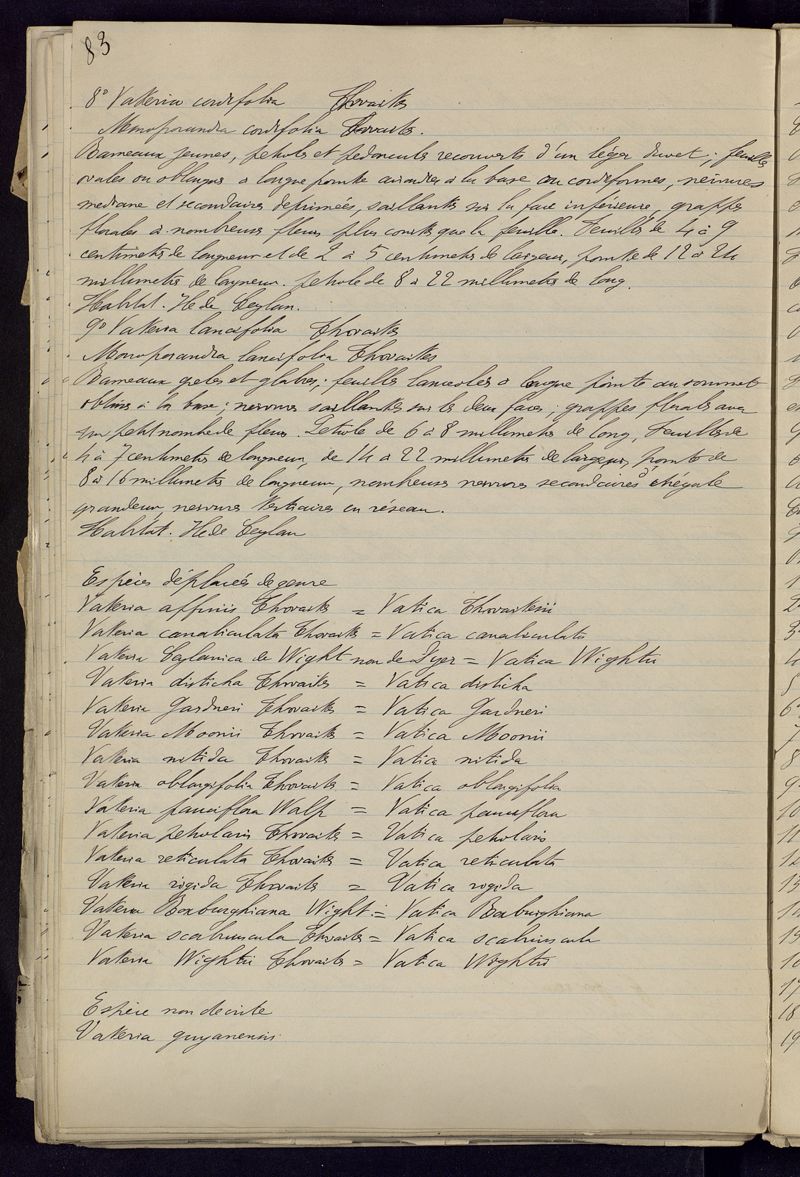 83
8° Vateria cordifolia Thwaites
Monoporandra cordifolia Thwaites.
Rameaux jeunes, petiols et pedoncules recouverts d'un léger duvet; feuilles
ovales ou oblongues a longue pointe arrondies à la base ou cordiformes, nervures
mediane et secondaires deprimées, saillantes sur la face inferieure, grappes
florales à nombreuses fleurs plus courtes que la feuille. Feuilles de 4 à 9
centimetres de longueur et de 2 à 5 centimetres de largeur, pointe de 12 à 24
millimetres de longueur. petiole de 8 à 22 millimetres de long.
Habitat. Ile de Ceylan.
9° Vateria lancifolia Thwaites
Monoporandra lancifolia Thwaites
Rameaux greles et glabres; feuilles lanceolés a longue pointe au sommet
obtus à la base; nervures saillantes sur les deux faces; grappes florales avec
un petit nombre de fleurs. Petiole de 6 à 8 millimetres de long, Feuilles de
4 à 7 centimetres de longueur, de 14 à 22 millimetres de largeur, pointe de
8 à 16 millimetres de longueur, nombreuses nervures secondaires d'inégale
grandeur, nervures tertiaires en réseau.
Habitat. Ile de Ceylan
Espèces déplacées de genre
Vateria affinis Thwaites = Vatica Thwaitesii
Vateria canaliculata Thwaites = Vatica canaliculata
Vateria Ceylanica de Wight non de Dyer = Vatica Wightii
Vateria disticha Thwaites = Vatica disticha
Vateria Gardneri Thwaites = Vatica Gardneri
Vateria Moonii Thwaites = Vatica Moonii
Vateria nitida Thwaites = Vatica nitida
Vateria oblongifolia Thwaites = Vatica oblongifolia
Vateria pauciflora Walp = Vatica pauciflora
Vateria petiolaris Thwaites = Vatica petiolaris
Vateria reticulata Thwaites = Vatica reticulata
Vateria rigida Thwaites = Vatica rigida
Vateria Roxburghiana Wight = Vatica Roxburghiana
Vateria scabriuscula Thwaites = Vatica scabriuscula
Vateria Wightii Thwaites = Vatica Wightii
Espèce non decrite
Vateria guyanensis